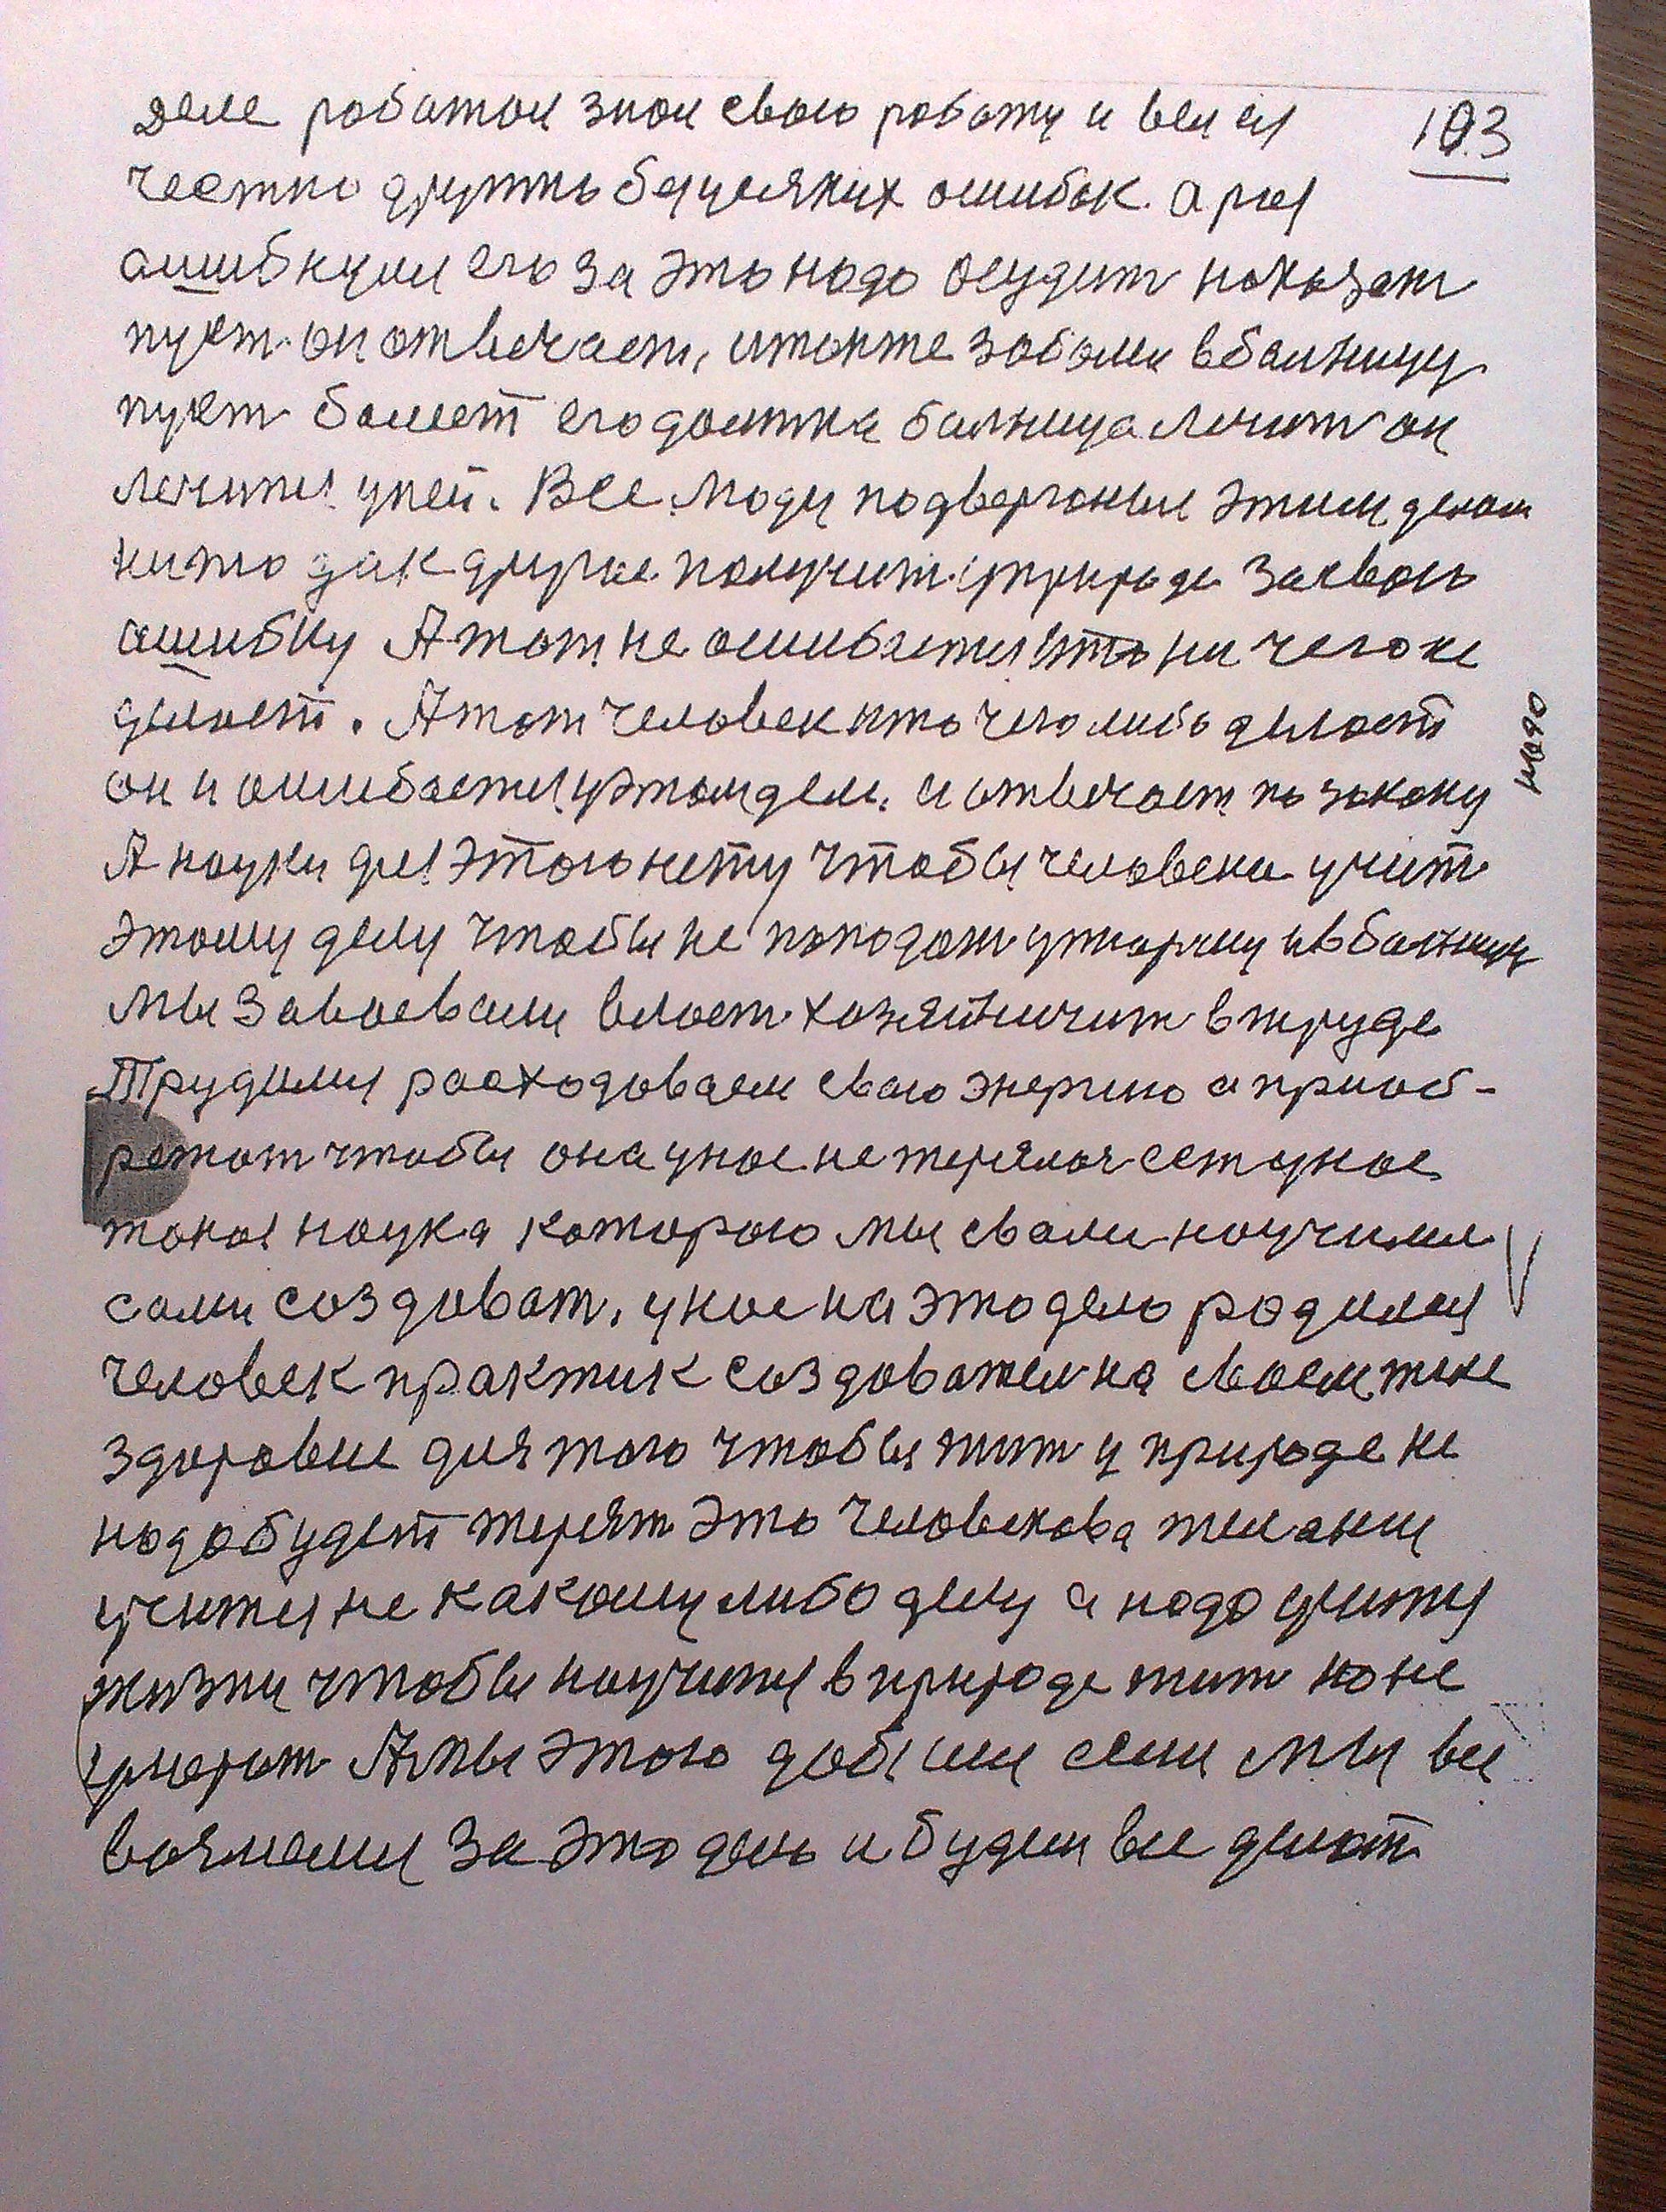 деле роботал знал свою роботу и вел ея
103
честно дружно безусяких ошибок. а раз
ашибнулся его за это надо осудит наказат
пуст он отвечает, и также заболел в балницу
пуст болеет его должна балница лечит он
лечится у ней. Все люди подверганые этим делам
ни то дак другое получит у природе за свою
ошибку А тот не ошибается кто ни чего не
делает. А тот человек кто чего либо делает
он и ошибается у этом деле. и отвечает по закону
надо
А науки для этого нету чтобы человека учит
этому делу чтобы не попадат у тюрму и в балницу
мы завоевали власт хозяйничит в труде
Трудимся расходоваем сваю энергию а приоб-
ретат чтобы она у нас не терялас ест у нас
такая наука которую мы свами научился
сами создават, у нас на это дело родился
человек практик создавател на своем теле
здоровие для того чтобы жит у природе не
надо будет терят это человекова желание
учится не какому либо делу а надо учится
жизни чтобы научится в природе жит но не
умерат А мы этого добился если мы все
возмемся за это дело и будем все делат